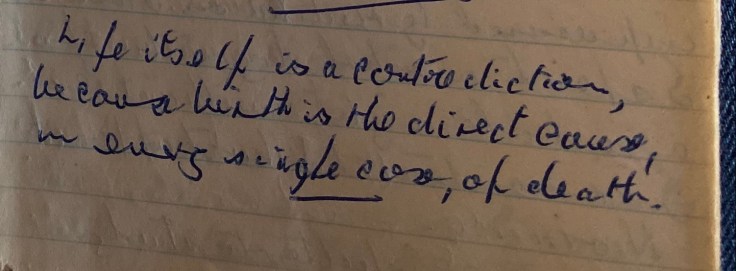 Life itself is a contradiction,
because birth is the direct cause,
in every single case, of death.